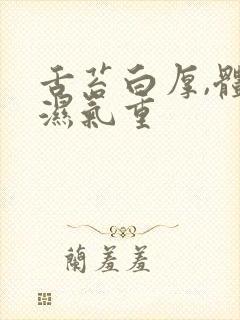 舌苔白厚,體
濕氣重
蘭羞羞